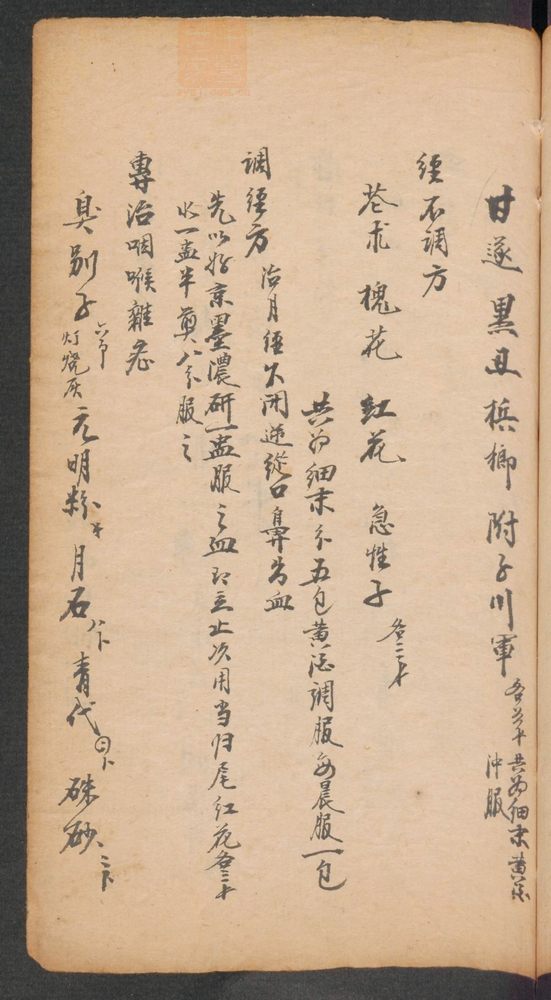 甘遂 黑丑 梹榔 附子 川軍 各 共為細末 黃酒
沖服
經不調方
蒼朮 槐花 紅花 急性子 各三
共為細末分五包黃酒調服每晨服一包
調經方 治月經不 逆從口鼻出血
先以好京墨濃研一盅服之血即立止次用当归尾紅花各三
水一盅半煎八分服之
專治咽喉雜症
臭别子 灯烧灰 元明粉 月石 青代 硃砂